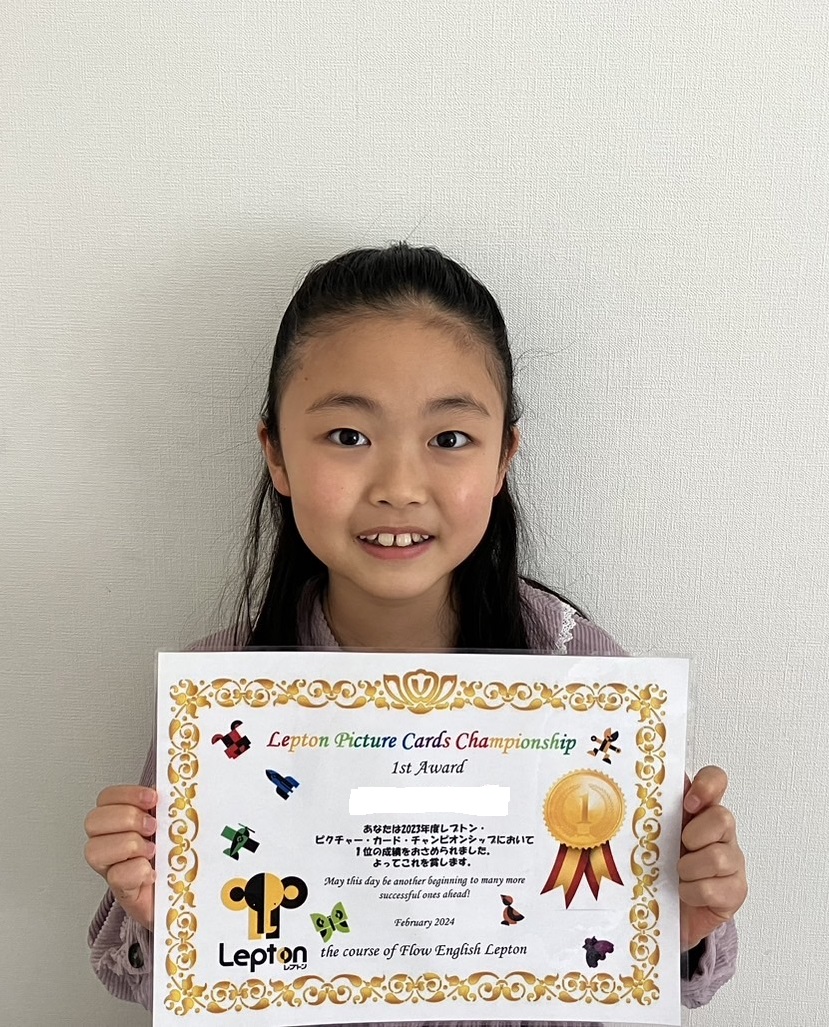 Lepton Picture Cards Championship
1st Award
1
あなたは2023年度レプトン・
ピクチャー・カード・チャンピオンシップにおいて
1位の成績をおさめられました。
よってこれを賞します。
May this day be another beginning to many more
successful ones ahead!
February 2024
Lepton
レプトン
the course of Flow English Lepton